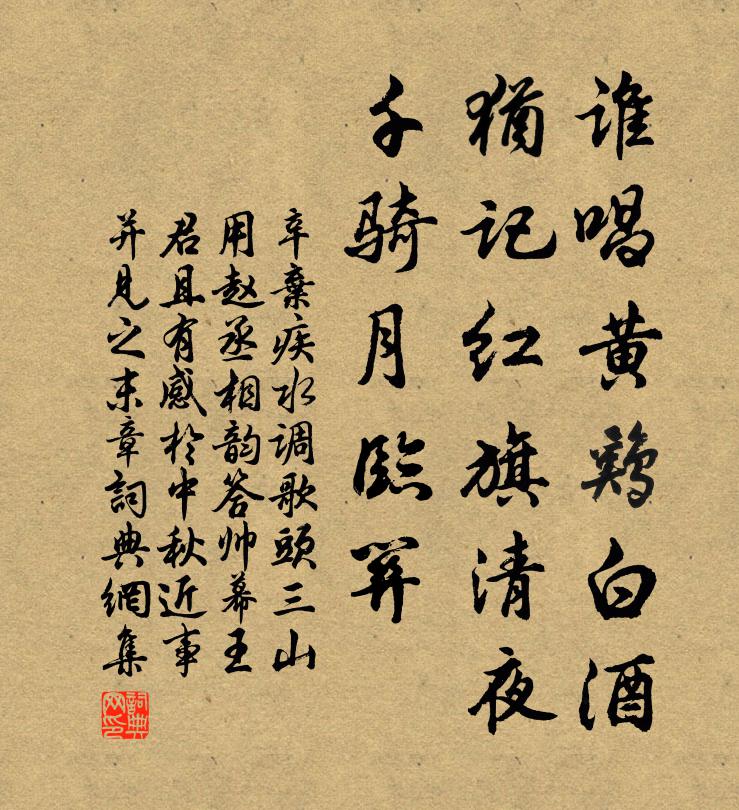 谁唱黄鷄白酒
猶记红旗清夜
千骑月臨關
辛棄疾水调歌頭三山
用赵丞相韵答帅幕王
君且有感於中秋近事
并見之末章詞典網集
詞典网印